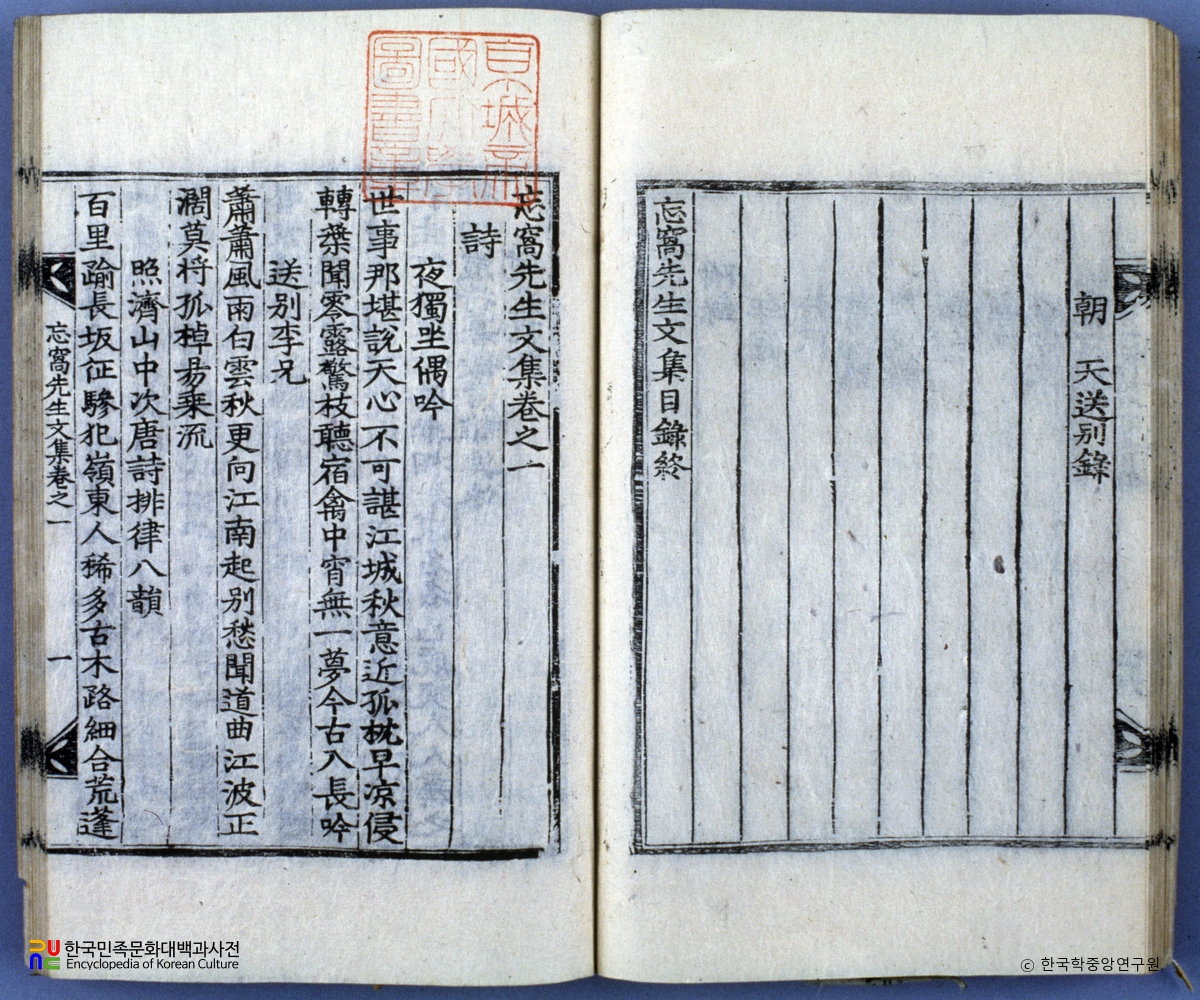 朝 天送別錄
忘窩先生文集目錄終
京城帝
國大學
圖書章
忘窩先生文集卷之一
詩
夜獨坐偶吟
世事那堪說天心不可諶江城秋意近孤枕早凉侵
轉葉聞零露驚枝聽宿禽中宵無一夢今古入長吟
送別李兄
蕭蕭風雨白雲秋更向江南起別愁聞道曲江波正
濶莫將孤棹易乘流
照濟山中次唐詩排律八韻
百里踰長坂征驂犯嶺東人稀多古木路細合荒蓬
忘窩先生文集卷之一
一
한국민족문화대백과사전
Encyclopedia of Korean Culture
© 한국학중앙연구원